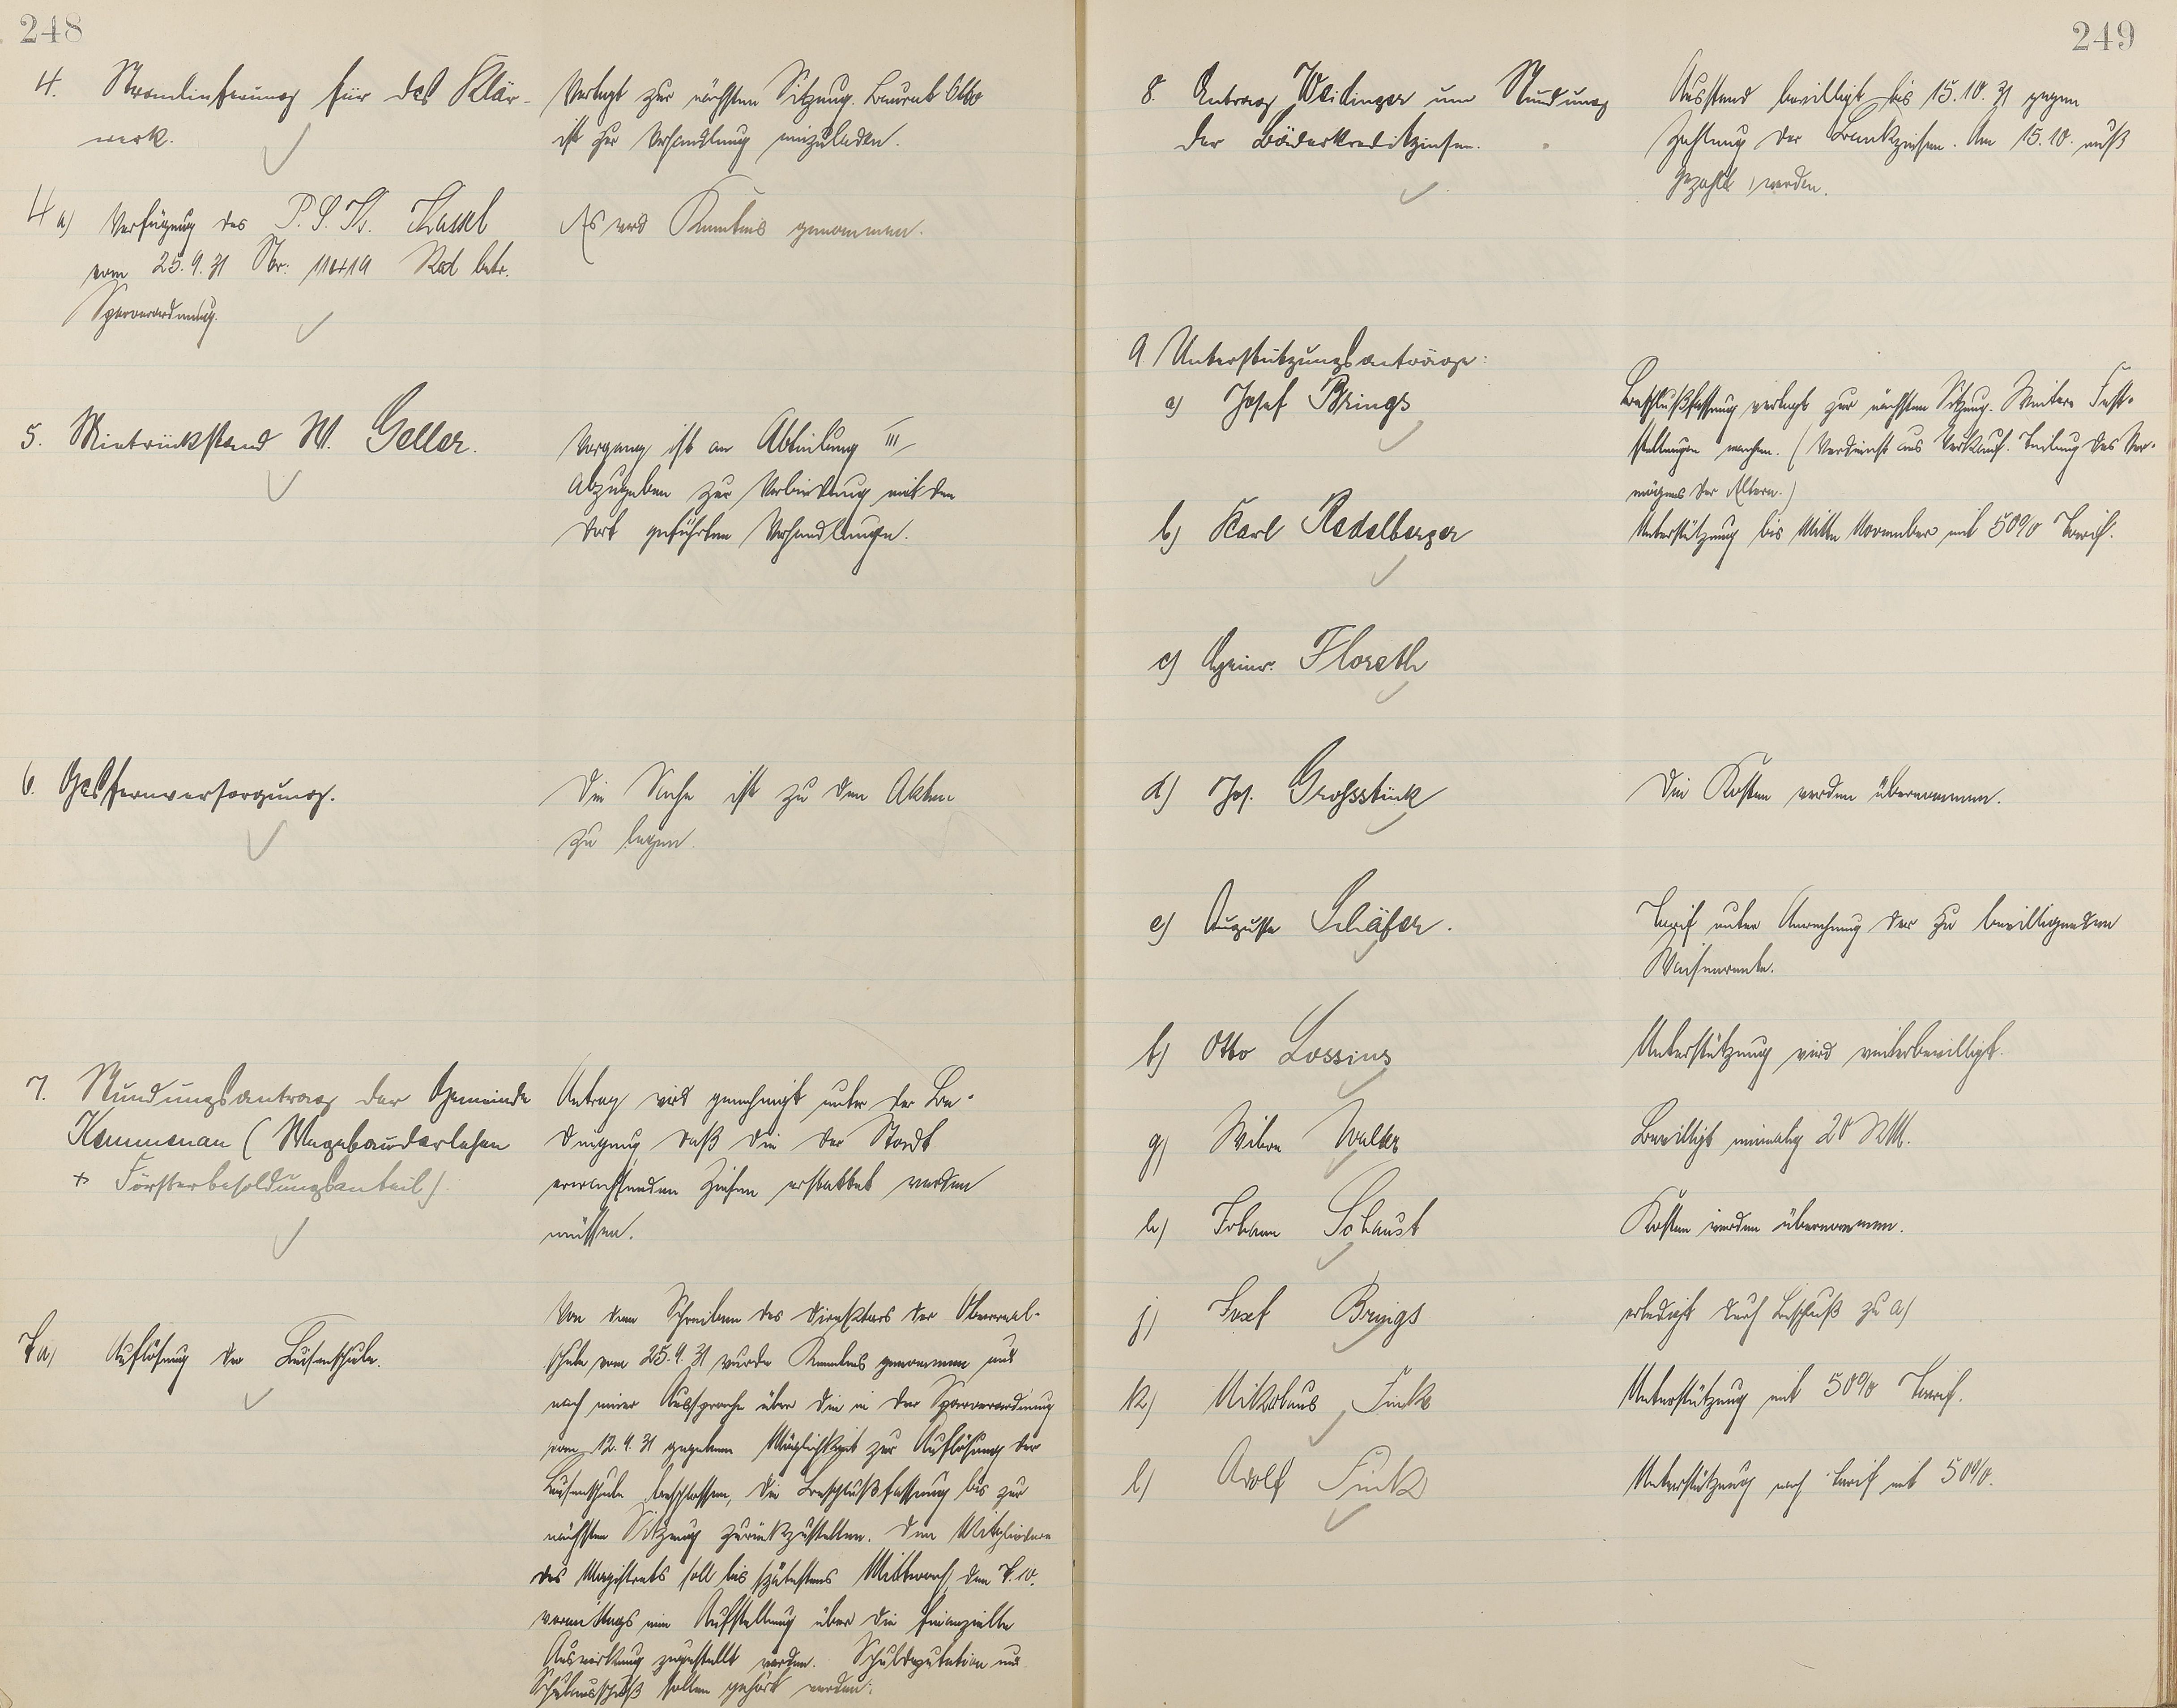 248
4. Stromlieferung für das Klär-
werk.
Vertagt zur nächsten Sitzung. Baurat Otto
ist zur Verhandlung einzuladen.
4 a) Verfügung des P. S. K. Kassel
vom 25.9.31 Nr: Rd betr.
Sparverordnung.
Es wird Kenntnis genommen.
5. Mietrückstand W. Geller.
Vorgang ist an Abteilung III
abzugeben zur Verbindung mit den
dort geführten Verhandlungen.
6. Gasfernversorgung.
Die Sache ist zu den Akten
zu legen.
7. Stundungsantrag der Gemeinde
Kemmenau (Wegebaudarlehen
+ Försterbesoldungsanteil).
Antrag wird genehmigt unter der Be-
dingung, daß die der Stadt
erwachsenden Zinsen erstattet werden
müssen.
7 a) Auflösung der Luisenschule.
Von dem Schreiben des Direktors der Oberreal-
schule vom 25.9.31 wurde Kenntnis genommen und
nach einer Aussprache über die in der Sparverordnung
vom 12.9.31 gegebene Möglichkeit zur Auflösung der
Luisenschule beschlossen, die Beschlußfassung bis zur
nächsten Sitzung zurückzustellen. Den Mitgliedern
des Magistrats soll bis spätestens Mittwoch, den 7.10.
vormittags eine Aufstellung über die finanzielle
Auswirkung zugestellt werden. Schuldeputation und
Schulausschuß sollen gehört werden.
249
8. Antrag Weidinger um Stundung
der Bäderkreditzinsen.
Ausstand bewilligt bis 15.10.31 gegen
Zahlung der Bankzinsen. Am 15.10. muß
gezahlt werden.
9 Unterstützungsanträge:
a) Josef Brings
Beschlußfassung vertagt zur nächsten Sitzung. Weitere Fest-
stellungen machen. (Verdienst aus Verkauf. Teilung des Ver-
mögens der Eltern.)
b) Karl Radelberger
Unterstützung bis Mitte November mit 50% Tarif.
c) Heinr. Floreth
d) Jos. Grossstück
Die Kosten werden übernommen.
e) Auguste Schäfer.
Tarif unter Anrechnung der zu bewilligenden
Waisenrente.
f) Otto Lossius
Unterstützung wird weiterbewilligt.
g) Witwe Walter
Bewilligt einmalig 20 RM.
h) Johann Schaust
Kosten werden übernommen.
j) Josef Brings
erledigt durch Beschluß zu a)
k) Nikolaus Fink
Unterstützung mit 50% Tarif.
l) Adolf Fink
Unterstützung nach Tarif mit 50%.